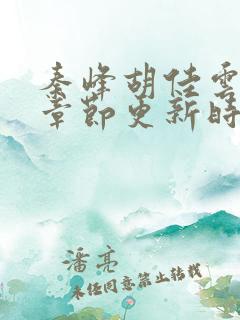 秦峰胡佳雲
章節更新時
潘亮
未经同意禁止转载